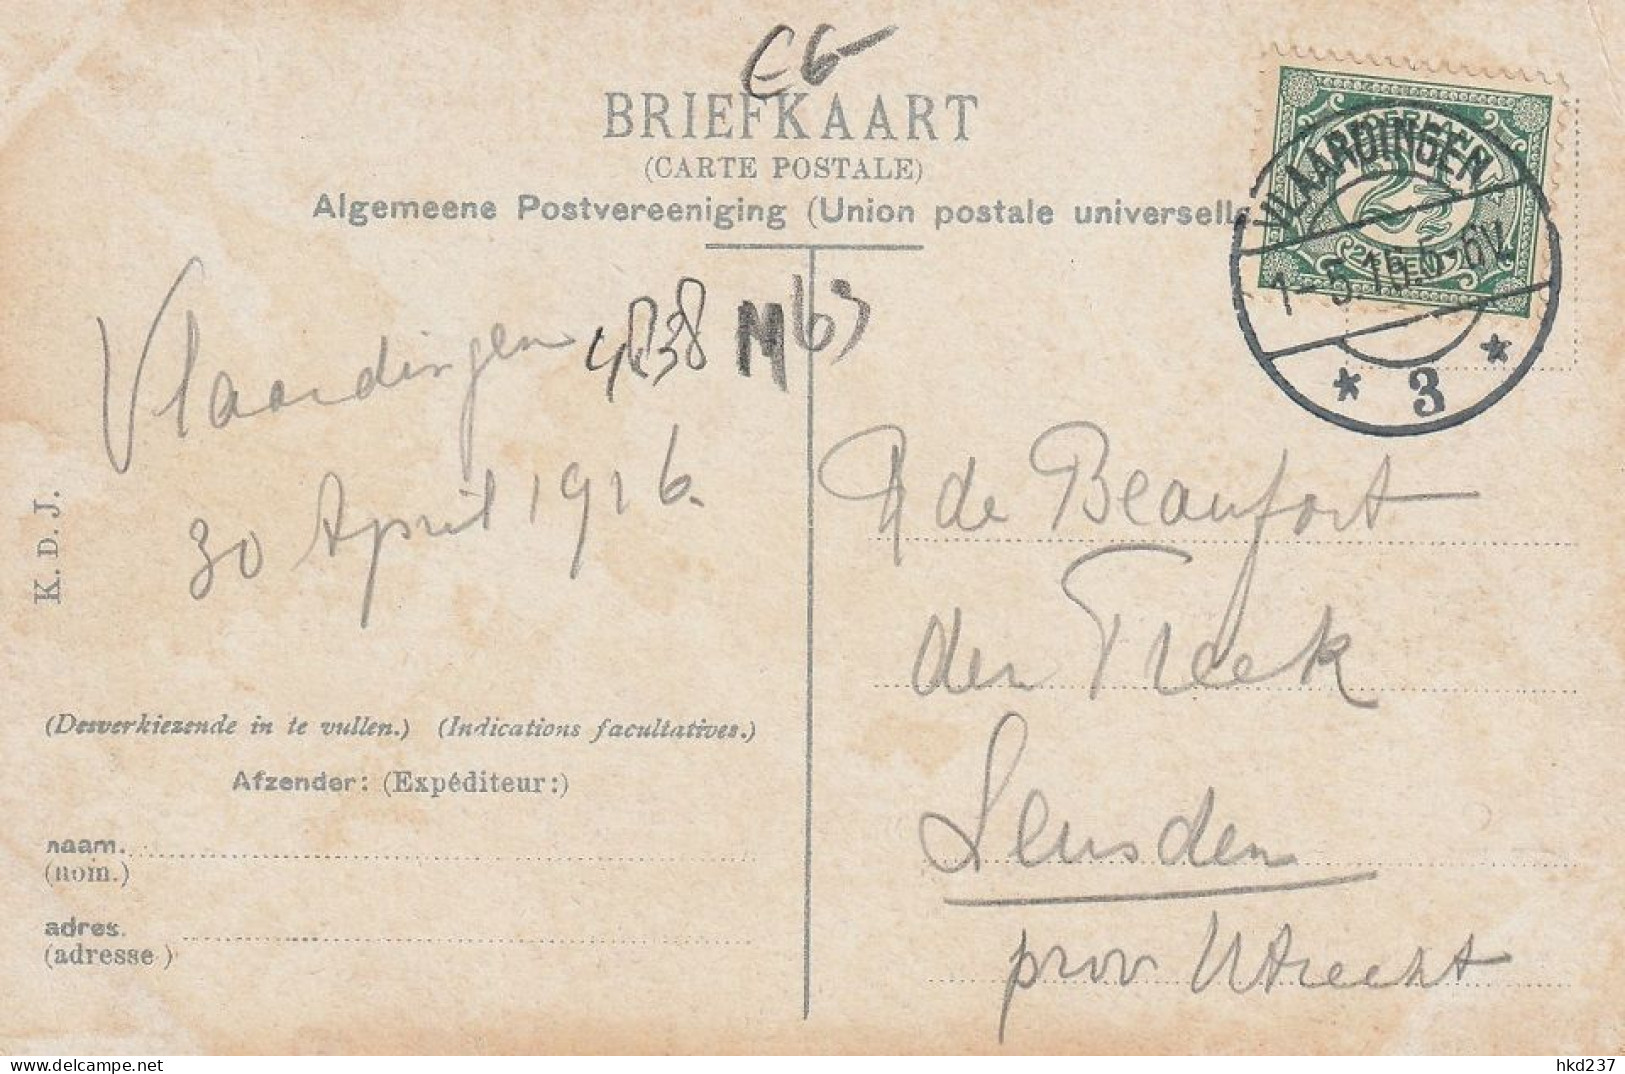 BRIEFKAART
(CARTE POSTALE)
Algemeene Postvereeniging (Union postale universell
NEDERLAND
2½
CENT
VLAARDINGEN
1-5.16.5-6V
* 3 *
Vlaardingen
30 April 1916.
4838 M 63
K. D. J.
de Beaufort
den Treek
Leusden
prov Utrecht
(Desverkiezende in te vullen.) (Indications facultatives.)
Afzender: (Expéditeur:)
naam.
(nom.)
adres.
(adresse)
delcampe.net
hkd237